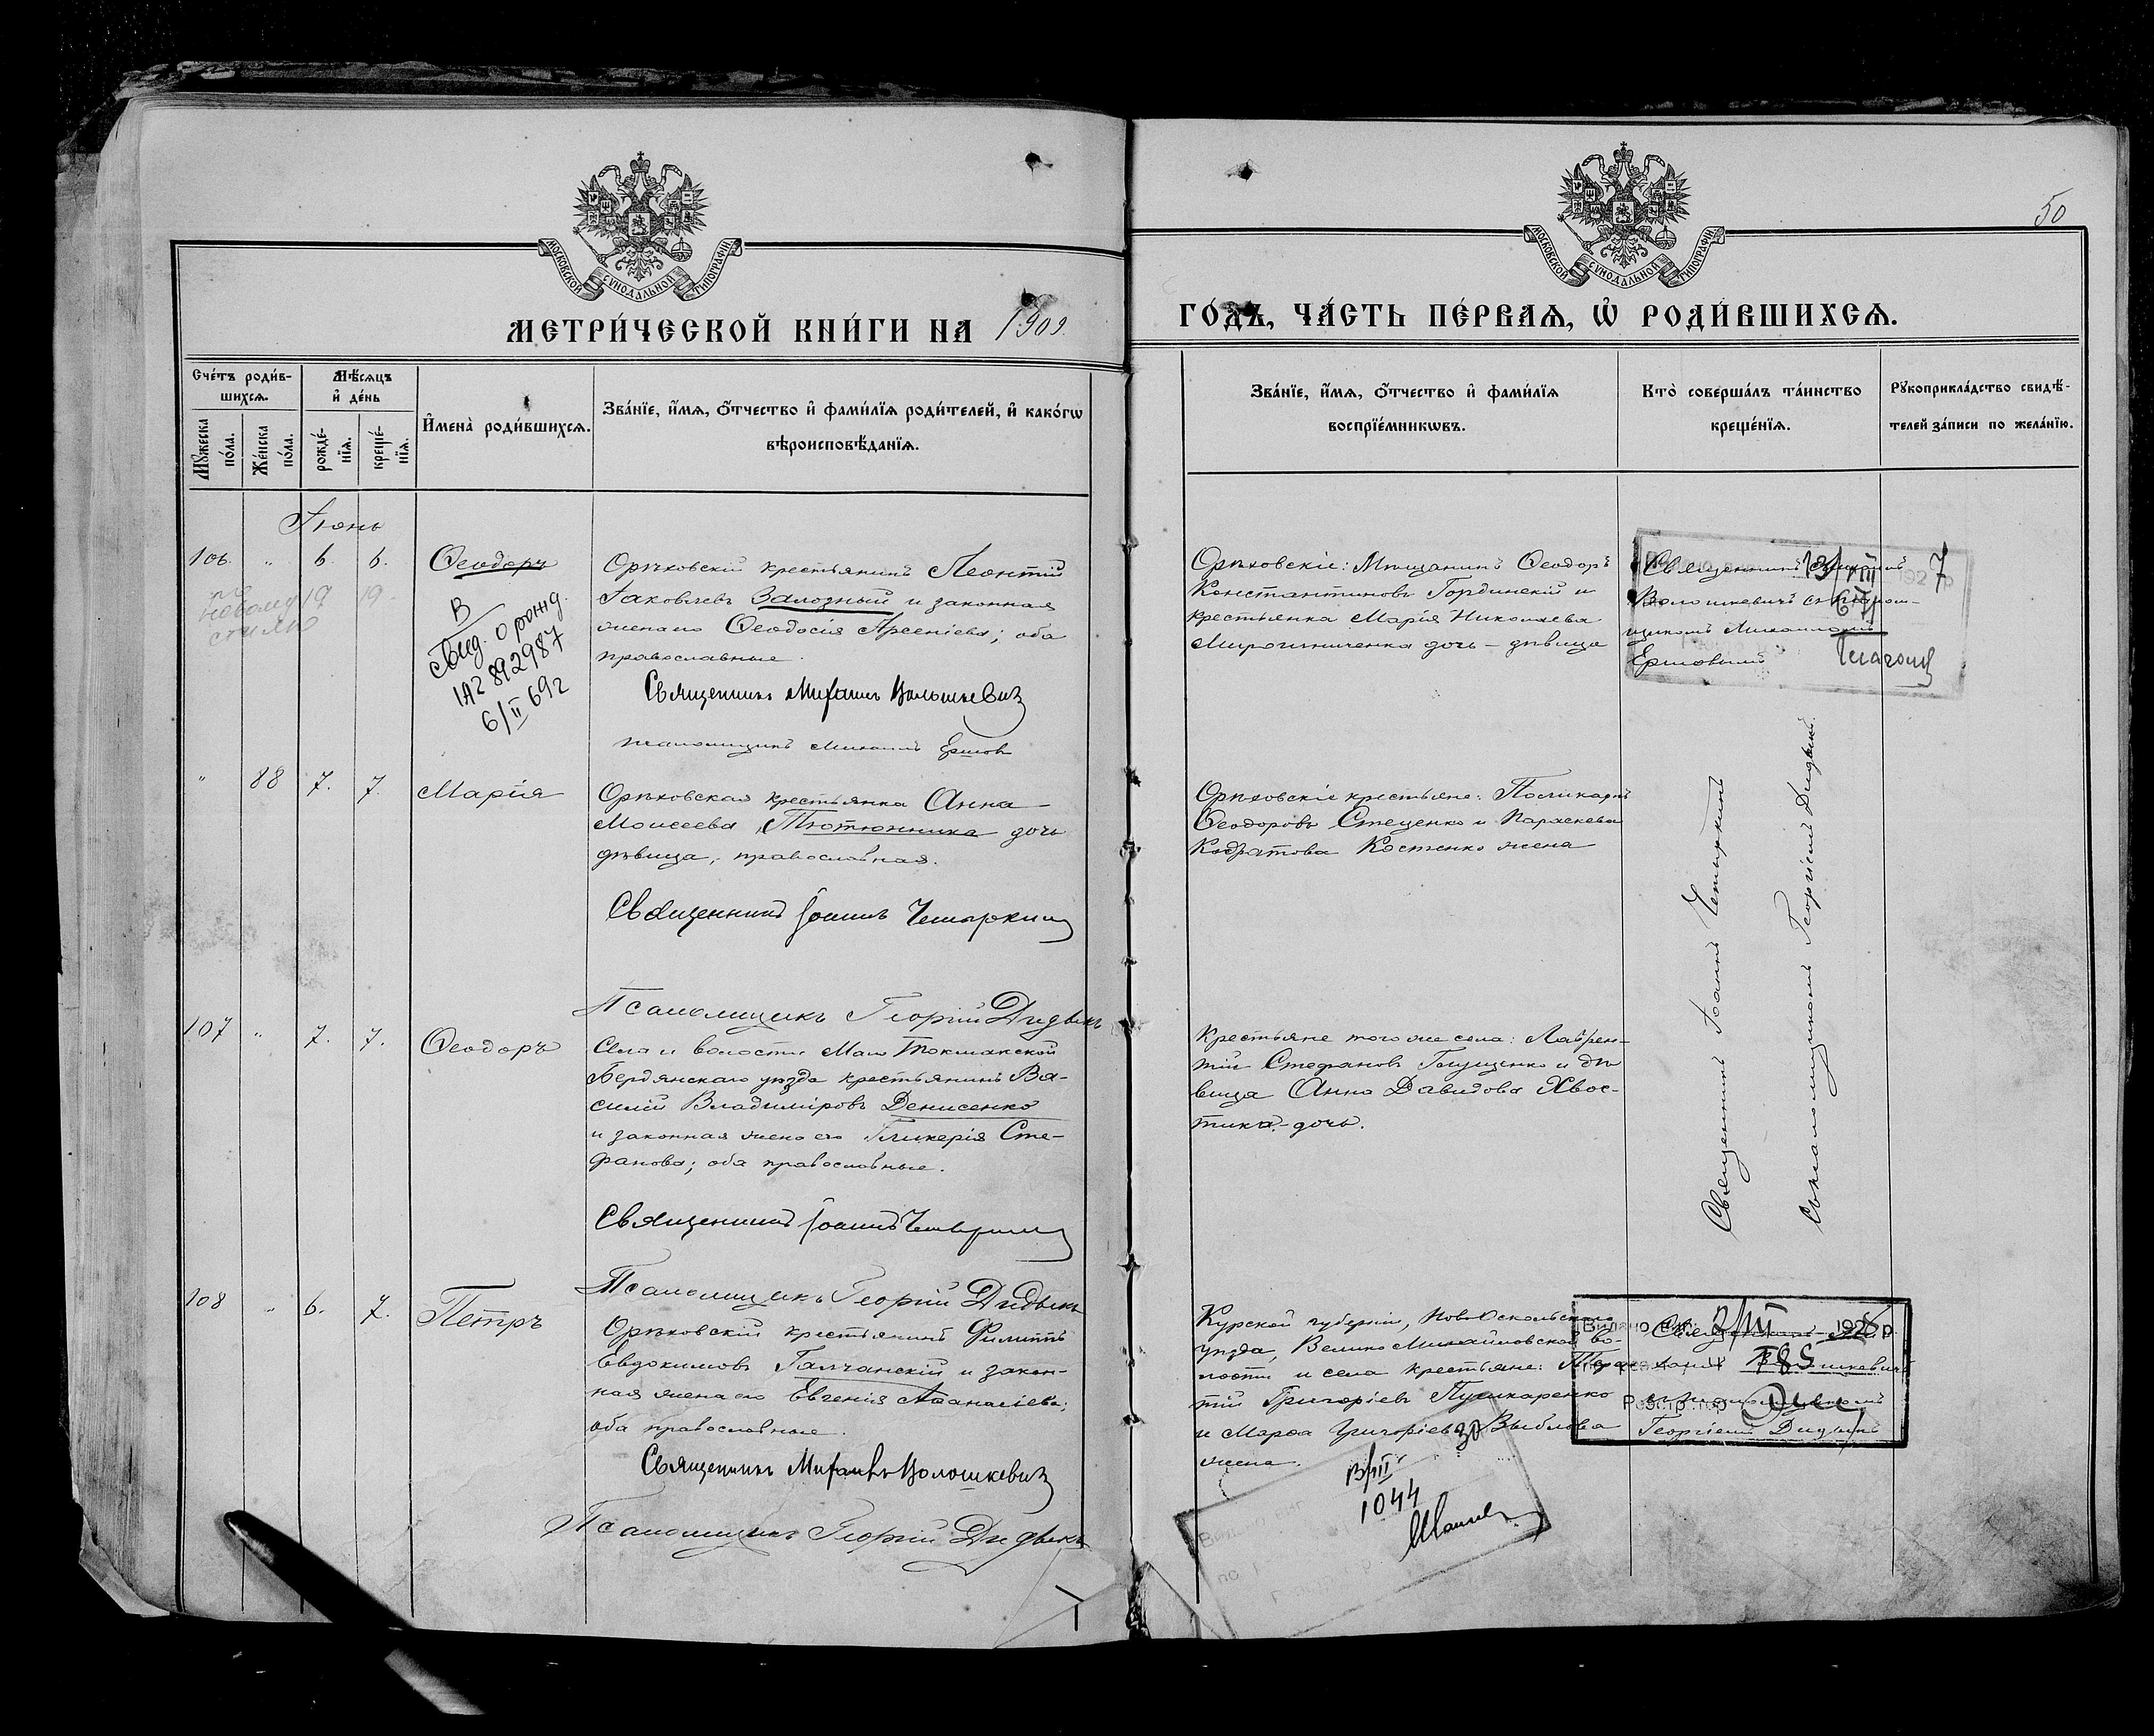 50
МОСКОВСКОЙ СѴНОДАЛЬНОЙ ТИПОГРАФІИ
МОСКОВСКОЙ СѴНОДАЛЬНОЙ ТИПОГРАФІИ
МЕТРИ́ЧЕСКОЙ КНИ́ГИ НА 1909.
ГО́ДЪ, ЧА́СТЬ ПЕ́РВАѦ, Ѿ РОДИ́ВШИХСѦ.
Сче́тъ роди́в-
шихсѧ.
Мꙋ́жеска
по́ла.
Же́нска
по́ла.
Мѣ́сѧцъ
и҆ де́нь
рожде́-
нїѧ.
креще́-
нїѧ.
И҆мена̀ роди́вшихсѧ.
Зва́нїе, и҆́мѧ, ѻ҆́тчество и҆ фами́лїѧ роди́телей, и҆ како́гѡ
вѣроисповѣ́данїѧ.
Зва́нїе, и҆́мѧ, ѻ҆́тчество и҆ фами́лїѧ
воспрїе́мникѡвъ.
Кто̀ соверша́лъ та́инство
креще́нїѧ.
Рꙋкоприкла́дство свидѣ́-
телей за́писи по жела́нїю.
Іюнь
106. " 6. 6.
по
новому 19 19.
стилю
Ѳеодоръ
В
Свид. о рожд.
892987
6/II 69г
Орѣховскій крестьянинъ Леонтій
Іаковлевъ Залозный и законная
жена его Ѳеодосія Арсеніева; оба
православные.
Священникъ Михаилъ Волошкевичъ
псаломщикъ Михаилъ Ершовъ
Орѣховскіе: Мѣщанинъ Ѳеодоръ
Константиновъ Гординскій и
крестьянка Марія Николаева
Мирошниченка дочь – дѣвица
Священникъ Михаилъ
Волошкевичъ съ псалом-
щикомъ Михаиломъ
Ершовымъ
192 7 р
" 88 7. 7.
Марія
Орѣховская крестьянка Анна
Моисеева Тютюнника дочь
дѣвица, православная.
Священникъ Іоаннъ Четыркинъ
Псаломщикъ Георгій Дидыкъ
Орѣховскіе крестьяне: Поликарпъ
Ѳеодоровъ Стеценко и Параскева
Кодратова Костенко жена
Священникъ Іоаннъ Четыркинъ
съ псаломщикомъ Георгіемъ Дидыкъ
107 " 7. 7.
Ѳеодоръ
Села и волости Мало Токмакской
Бердянскаго уѣзда крестьянинъ Ва-
силій Владиміровъ Денисенко
и законная жена его Гликерія Сте-
фанова; оба православные.
Священникъ Іоаннъ Четыркинъ
Псаломщикъ Георгій Дидыкъ
Крестьяне того же села: Лаврен-
тій Стефановъ Глущенко и дѣ
вица Анна Давидова Хвос-
тика - дочь.
108 " 6. 7.
Петръ
Орѣховскій крестьянинъ Филиппъ
Евдокимовъ Галчанскій и закон-
ная жена его Евгенія Аѳанасіева;
оба православные.
Священникъ Михаилъ Волошкевичъ
Псаломщикъ Георгій Дидыкъ
Курской губерніи, Ново Оскольскаго
уѣзда, Велико Михайловской во-
лости и села крестьяне:
тій Григоріевъ Пушкаренко
и Марѳа Григоріева
жена.
Видано 2/III 1928 р.
785
Реєстратор
Георгіемъ Дидыкъ
30
13/III
1044